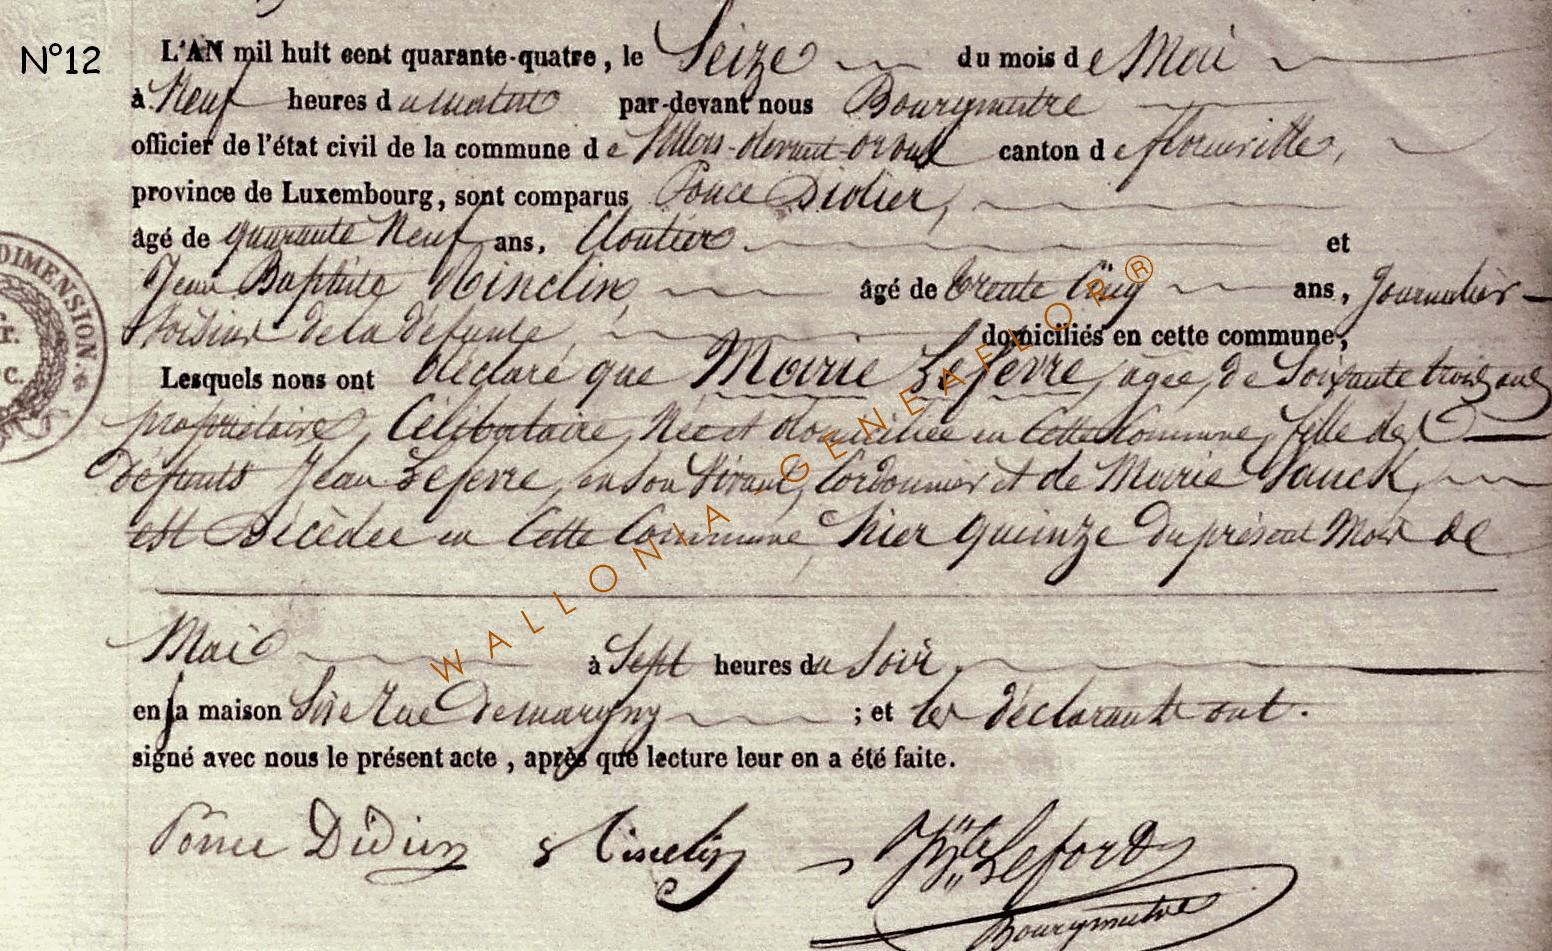 N°12
L'AN mil huit cent quarante-quatre, le Seize du mois de Mai
à Neuf heures du matin par-devant nous Bourgmestre
officier de l'état civil de la commune de Villers-devant-orval canton de florenville,
province de Luxembourg, sont comparus Ponce Didier,
âgé de quarante Neuf ans, Cloutier et
Jean Baptiste Tinclin, âgé de trente Cinq ans, Journalier
Voisins de la défunte, domiciliés en cette commune,
Lesquels nous ont déclaré que Marie Lefevre, agée, de Soixante trois ans
propriétaire, Célibataire, Née et domiciliée en Cette Commune, fille des
défunts Jean Lefevre, en son Vivant, Cordonnier et de Marie
est Décédée en Cette Commune, hier quinze du présent Mois de
Mai à Sept heures du Soir,
en sa maison Sise Rue Demargny ; et les déclarants ont.
signé avec nous le présent acte, après que lecture leur en a été faite.
Ponce Didier Tinclin Lefort
Bourgmestre
DIMENSION.
WALLONIA-GENEAFLOR®